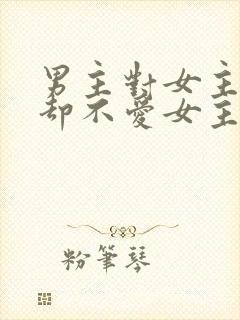 男主對女主
却不愛女主
粉筆琴